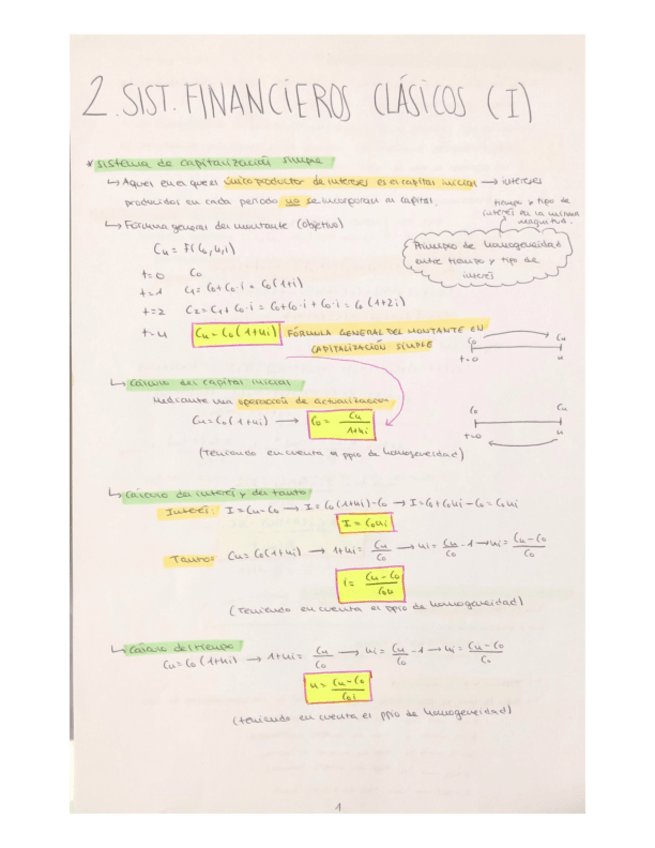 2. SIST. FINANCIEROS CLÁSICOS (I)
* Sistema de capitalización simple
↳ Aquel en el que el único productor de intereses es el capital inicial → intereses
producidos en cada periodo no se incorporan al capital.
tiempo y tipo de
interés en la misma
magnitud.
Principio de homogeneidad
entre tiempo y tipo de
interés
↳ Fórmula general del montante (objetivo)
Cn = F(C0, n, i)
t=0 C0
t=1 C1 = C0 + C0·i = C0(1+i)
t=2 C2 = C1 + C0·i = C0 + C0·i + C0·i = C0(1+2i)
t=n Cn = C0(1+ni) FÓRMULA GENERAL DEL MONTANTE EN
CAPITALIZACIÓN SIMPLE
C0 Cn
t=0 n
↳ Cálculo del capital inicial
Mediante una operación de actualización
Cn = C0(1+ni) → C0 = Cn / 1+ni
C0 Cn
t=0 n
(Teniendo en cuenta el ppio de homogeneidad)
↳ Cálculo del interés y del tanto
Interés: I = Cn - C0 → I = C0(1+ni) - C0 → I = C0 + C0ni - C0 = C0ni
I = C0ni
Tanto: Cn = C0(1+ni) → 1+ni = Cn / C0 → ni = Cn / C0 - 1 → ni = Cn - C0 / C0
i = Cn - C0 / C0n
(Teniendo en cuenta el ppio de homogeneidad)
↳ Cálculo del tiempo
Cn = C0(1+ni) → 1+ni = Cn / C0 → ni = Cn / C0 - 1 → ni = Cn - C0 / C0
n = Cn - C0 / C0i
(teniendo en cuenta el ppio de homogeneidad)
1